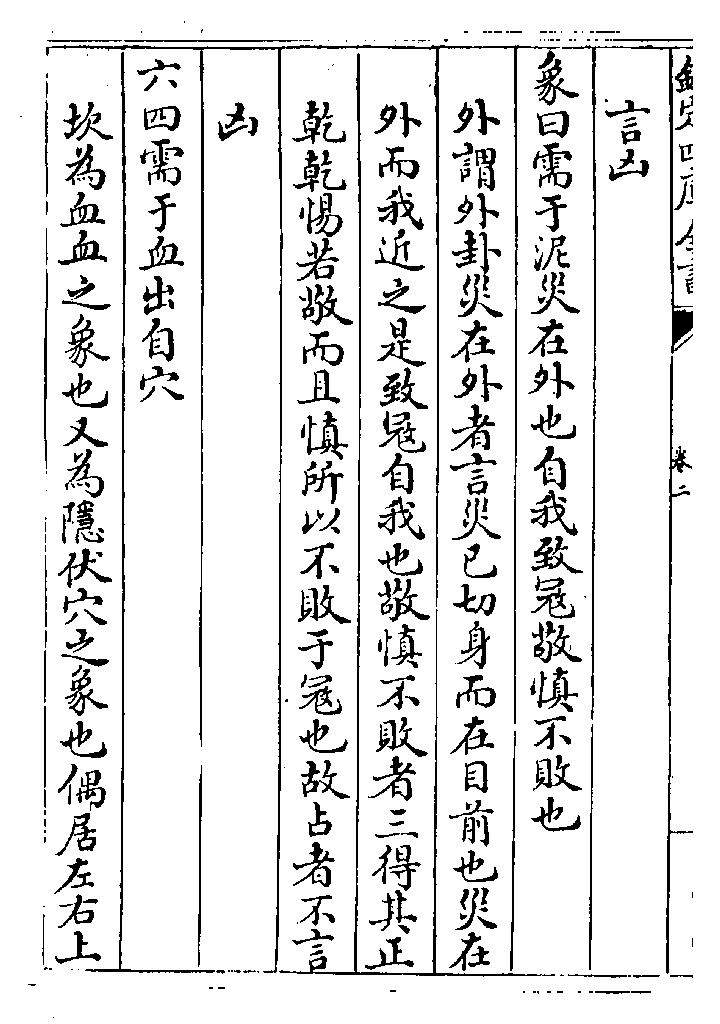 欽定四庫全書
卷二
言凶
象曰需于泥災在外也自我致冦敬慎不敗也
外謂外卦災在外者言災已切身而在目前也災在
外而我近之是致冦自我也敬慎不敗者三得其正
乾乾惕若敬而且慎所以不敗于冦也故占者不言
凶
六四需于血出自穴
坎為血血之象也又為隱伏穴之象也偶居左右上